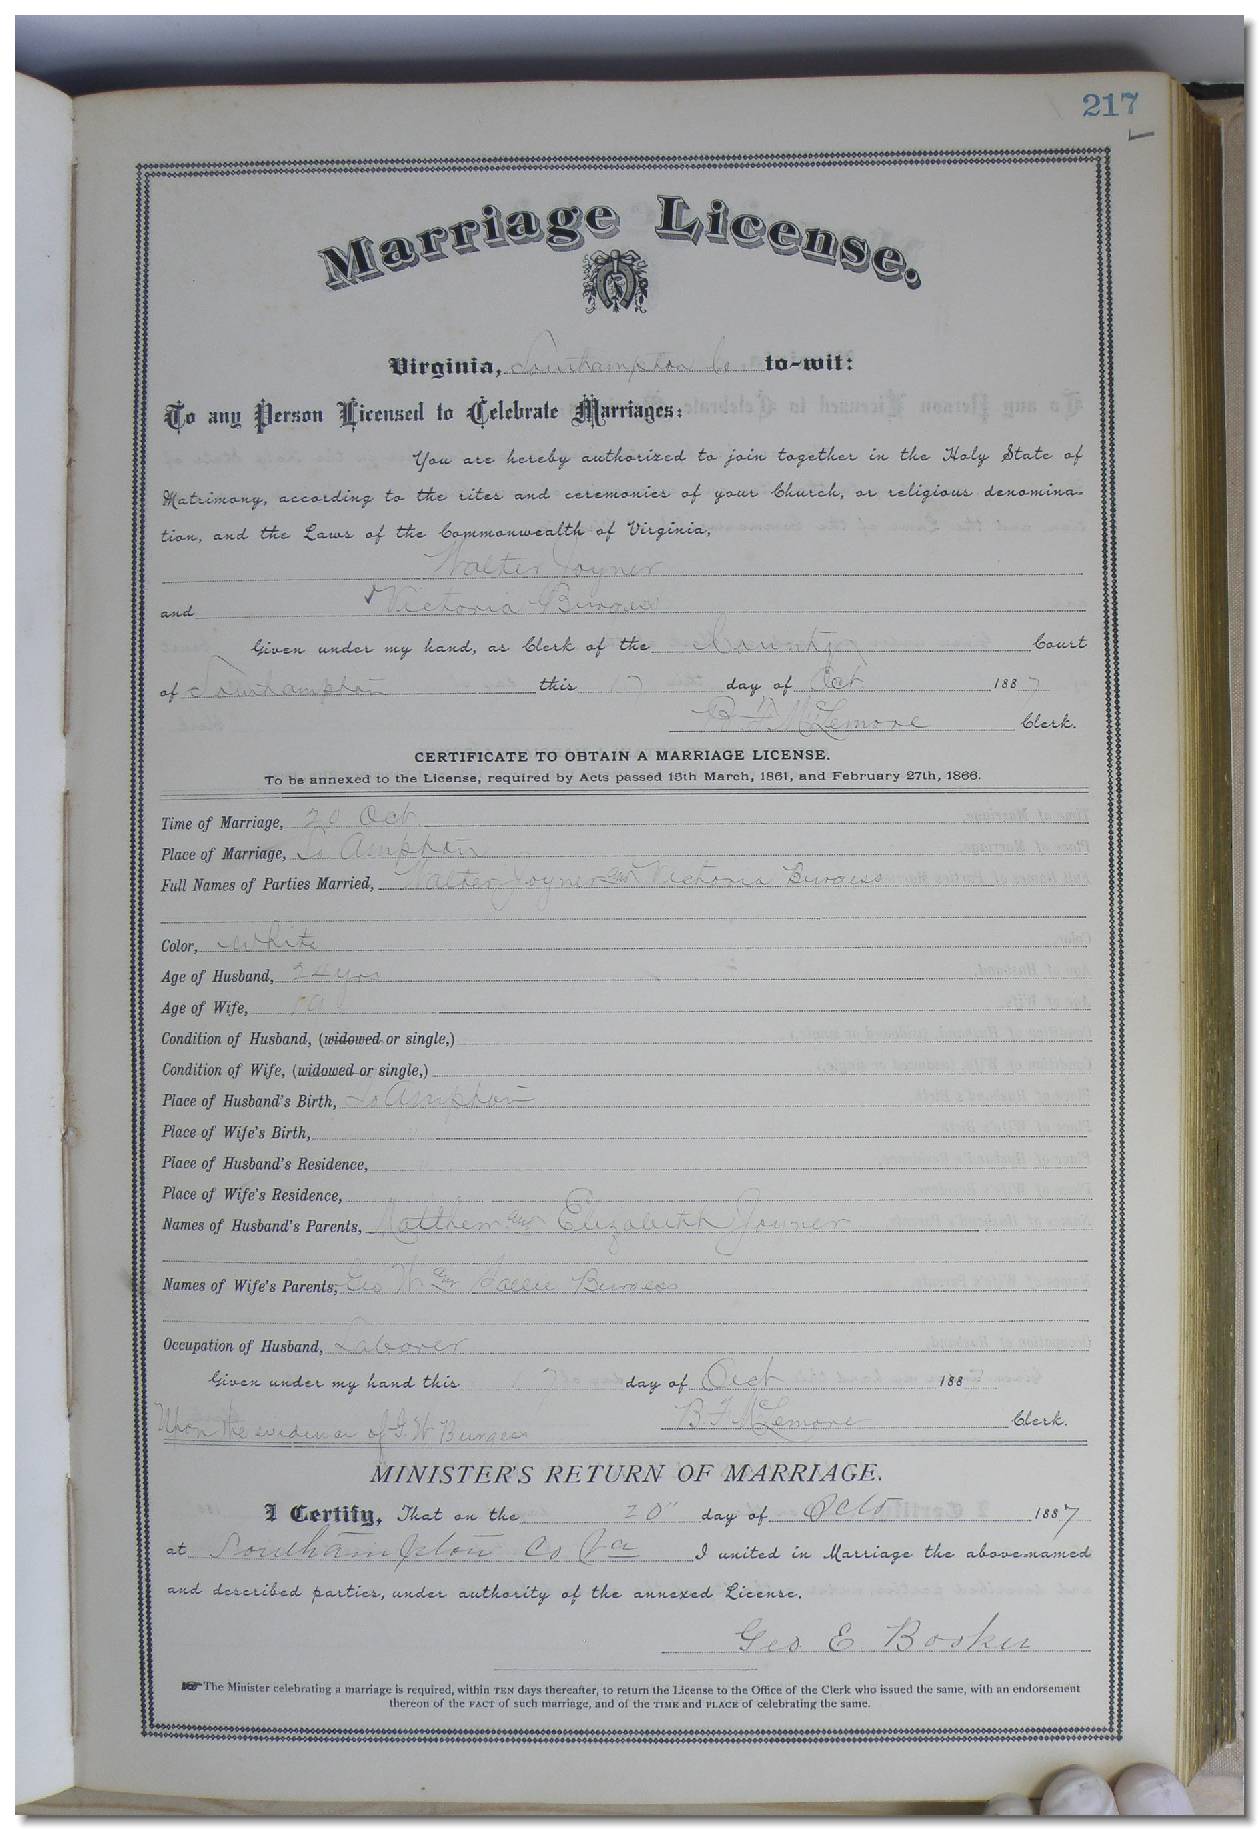 217
Marriage License.
Virginia, Southampton Co. to-wit:
To any Person Licensed to Celebrate Marriages:
You are hereby authorized to join together in the Holy State of
Matrimony, according to the rites and ceremonies of your Church, or religious denomina-
tion, and the Laws of the Commonwealth of Virginia,
Walter Joyner
and Victoria Burgess
Given under my hand, as Clerk of the County Court
of Southampton this 7 day of Oct 1887
B F McLemore Clerk.
CERTIFICATE TO OBTAIN A MARRIAGE LICENSE.
To be annexed to the License, required by Acts passed 15th March, 1861, and February 27th, 1866.
Time of Marriage, 20 Oct
Place of Marriage, So Ampton
Full Names of Parties Married, Walter Joyner and Victoria Burgess
Color, White
Age of Husband, 24 yrs
Age of Wife,
Condition of Husband, (widowed or single,)
Condition of Wife, (widowed or single,)
Place of Husband's Birth, So Ampton
Place of Wife's Birth, "
Place of Husband's Residence, "
Place of Wife's Residence,
Names of Husband's Parents, Matthew and Elizabeth Joyner
Names of Wife's Parents, Geo W & Sallie Burgess
Occupation of Husband, Laborer
Given under my hand this 7 day of Oct 1887
Upon the evidence of G. W Burgess B. F McLemore Clerk.
MINISTER'S RETURN OF MARRIAGE.
I Certify, That on the 20" day of Octo 1887
at Southampton Co Va I united in Marriage the above-named
and described parties, under authority of the annexed License.
Geo E Booker
☞ The Minister celebrating a marriage is required, within TEN days thereafter, to return the License to the Office of the Clerk who issued the same, with an endorsement
thereon of the FACT of such marriage, and of the TIME and PLACE of celebrating the same.